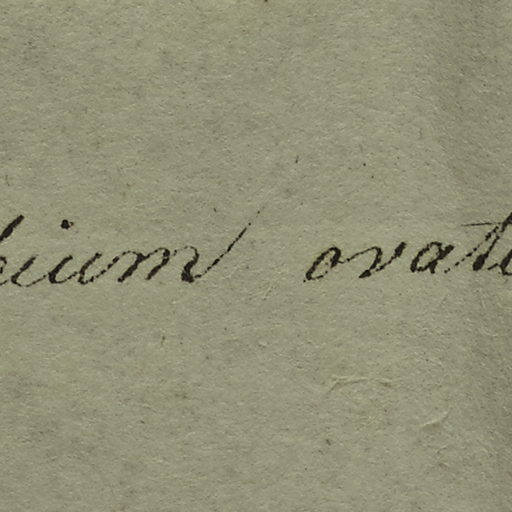 bium ovat